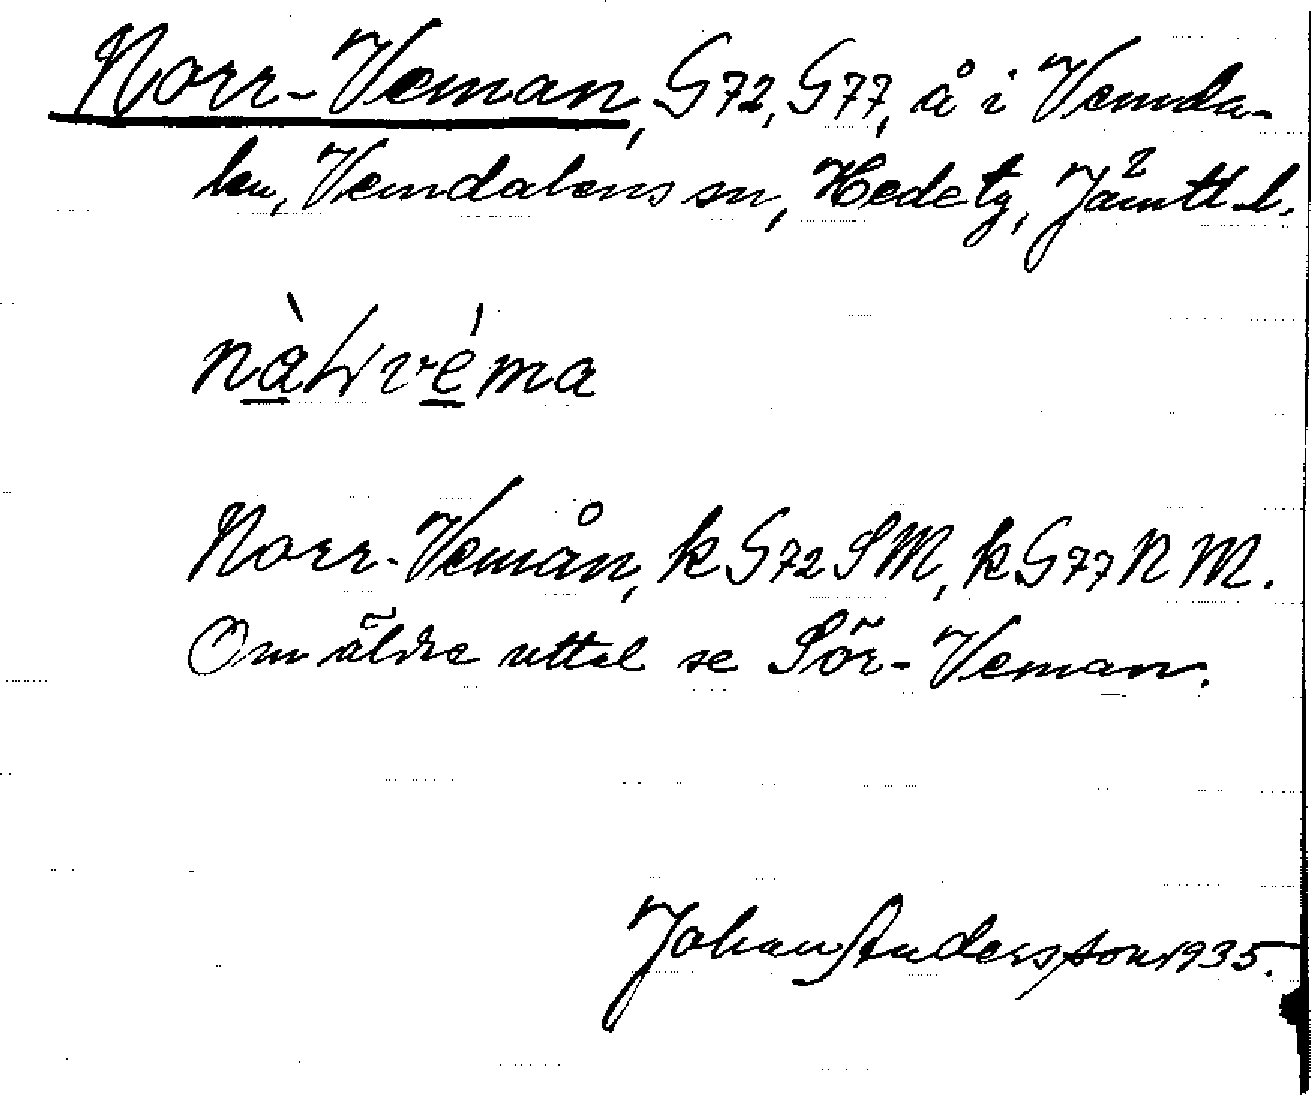 Norr-Veman, G72, G77, å i Vemda-
len, Vemdalens sn, Hede tg, Jämtl. l.
Norr-Vemån, k G72 SM, k G77 NM.
Om äldre uttal se Sör-Veman.
Johan Andersson 1935.